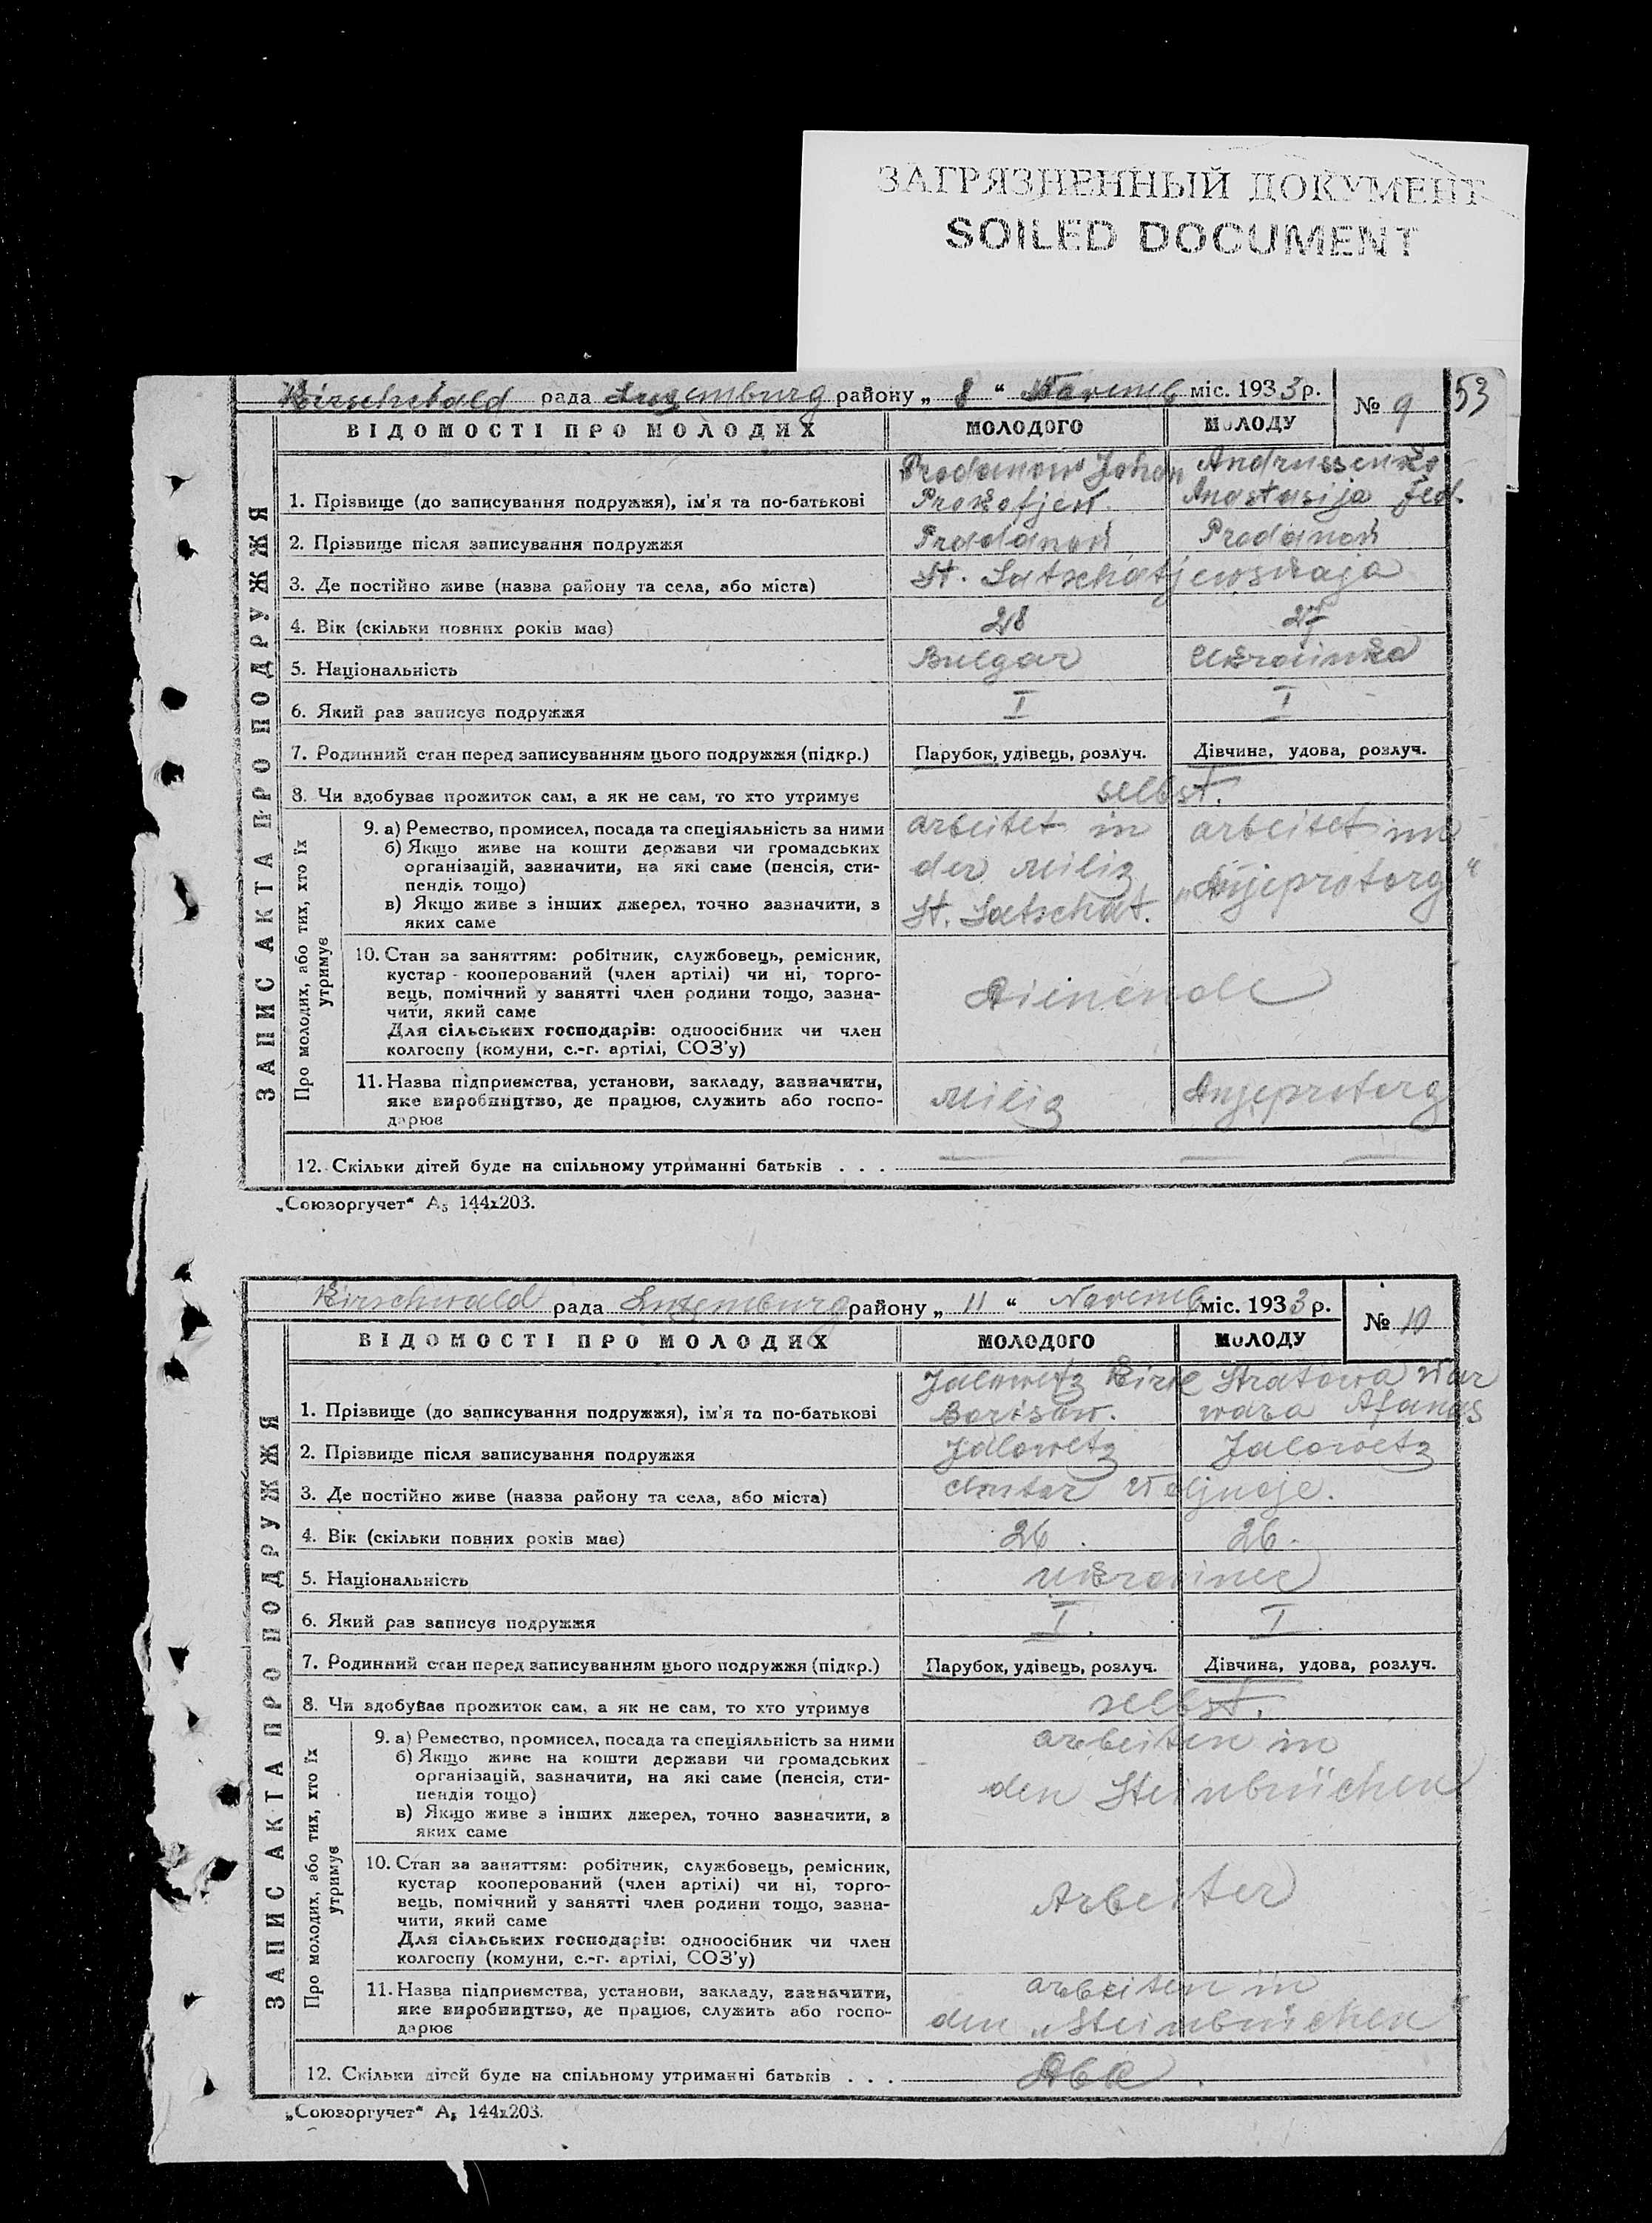 ЗАГРЯЗНЕННЫЙ ДОКУМЕНТ
SOILED DOCUMENT
Kirschwald рада Luxemburg району „ 8 “ Novemb міс. 1933 р.
№ 9
53
ВІДОМОСТІ ПРО МОЛОДИХ
МОЛОДОГО
МОЛОДУ
ЗАПИС АКТА ПРО ПОДРУЖЖЯ
1. Прізвище (до записування подружжя), ім'я та по-батькові
Prodanow Johan
Prokofjew.
Andrussenko
Anastasija Fed.
2. Прізвище після записування подружжя
Prodanow
Prodanow
3. Де постійно живе (назва району та села, або міста)
St. Satschatjewskaja
4. Вік (скільки повних років має)
28
27
5. Національність
Bulgar
Ukrainka
6. Який раз записує подружжя
I
I
7. Родинний стан перед записуванням цього подружжя (підкр.)
Парубок, удівець, розлуч.
Дівчина, удова, розлуч.
8. Чи здобуває прожиток сам, а як не сам, то хто утримує
selbst.
Про молодих, або тих, хто їх утримує
9. а) Ремество, промисел, посада та спеціяльність за ними
б) Якщо живе на кошти держави чи громадських
організацій, зазначити, на які саме (пенсія, сти-
пендія тощо)
в) Якщо живе з інших джерел, точно зазначити, з
яких саме
arbeitet in
der Miliz
St. Satschat.
arbeitet im
„Dnjeprotorg“
10. Стан за заняттям: робітник, службовець, ремісник,
кустар - кооперований (член артілі) чи ні, торго-
вець, помічний у занятті член родини тощо, зазна-
чити, який саме
Для сільських господарів: одноосібник чи член
колгоспу (комуни, с.-г. артілі, СОЗ'у)
Dienende
11. Назва підприємства, установи, закладу, зазначити,
яке виробництво, де працює, служить або госпо-
дарює
Miliz
Dnjeprotorg
12. Скільки дітей буде на спільному утриманні батьків . . .
„Союзоргучет“ А₅ 144x203.
Kirschwald рада Luxemburg району „ 11 “ Novemb міс. 1933 р.
№ 10
ВІДОМОСТІ ПРО МОЛОДИХ
МОЛОДОГО
МОЛОДУ
ЗАПИС АКТА ПРО ПОДРУЖЖЯ
1. Прізвище (до записування подружжя), ім'я та по-батькові
Jalowetz Kiril
Borisow.
Stratowa War
wara Afanas
2. Прізвище після записування подружжя
Jalowetz
Jalowetz
3. Де постійно живе (назва району та села, або міста)
Chutor Woljnoje.
4. Вік (скільки повних років має)
26.
26.
5. Національність
Ukrainer
6. Який раз записує подружжя
I.
I.
7. Родинний стан перед записуванням цього подружжя (підкр.)
Парубок, удівець, розлуч.
Дівчина, удова, розлуч.
8. Чи здобуває прожиток сам, а як не сам, то хто утримує
selbst.
Про молодих, або тих, хто їх утримує
9. а) Ремество, промисел, посада та спеціяльність за ними
б) Якщо живе на кошти держави чи громадських
організацій, зазначити, на які саме (пенсія, сти-
пендія тощо)
в) Якщо живе з інших джерел, точно зазначити, з
яких саме
arbeiten in
den Steinbrüchen
10. Стан за заняттям: робітник, службовець, ремісник,
кустар кооперований (член артілі) чи ні, торго-
вець, помічний у занятті член родини тощо, зазна-
чити, який саме
Для сільських господарів: одноосібник чи член
колгоспу (комуни, с.-г. артілі, СОЗ'у)
Arbeiter
11. Назва підприємства, установи, закладу, зазначити,
яке виробництво, де працює, служить або госпо-
дарює
arbeiten in
den „Steinbrüchen“
12. Скільки дітей буде на спільному утриманні батьків . . .
„Союзоргучет“ А₅ 144x203.